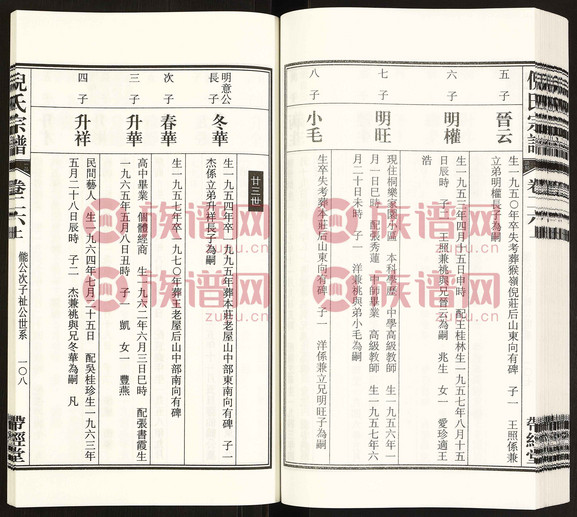 倪氏宗譜
卷二六
帶經堂
五子
晉云
生一九五〇年卒失考葬猴嶺倪莊后山東向有碑 子一 王照係兼
立弟明權長子為嗣
六子
明權
生一九五三年四月十五日申時 配王桂林生一九五七年八月十五
日辰時 子一 王照兼祧與兄晉云為嗣 兆生 女一 愛珍適王
浩
七子
明旺
現住桐樂家園小區 本科學歷 中學高級教師 生一九五六年一
月一日巳時 配張秀蓮 中師畢業 高級教師 生一九五七年六
月二十日未時 子一 洋兼祧與弟小毛為嗣
八子
小毛
生卒失考葬本莊后山東向有碑 子一 洋係兼立兄明旺子為嗣
廿三世
明意公
長子
冬華
生一九五四年卒一九九五年葬本莊老屋后山中部東南向有碑 子一
杰係立弟升祥長子為嗣
次子
春華
生一九五七年卒一九七〇年葬王老屋后山中部南向有碑
三子
升華
高中畢業 個體經商 生一九六二年六月三日巳時 配張書霞生
一九六五年五月八日丑時 子一 凱 女一 豐燕
四子
升祥
民間藝人 生一九六四年七月二十五日 配吳桂珍生一九六三年
五月二十八日辰時 子二 杰兼祧與兄冬華為嗣 凡
倪氏宗譜
卷二六上
能公次子祉公世系
一〇八
帶經堂
族谱网
zupu.cn
族谱网
zupu.cn